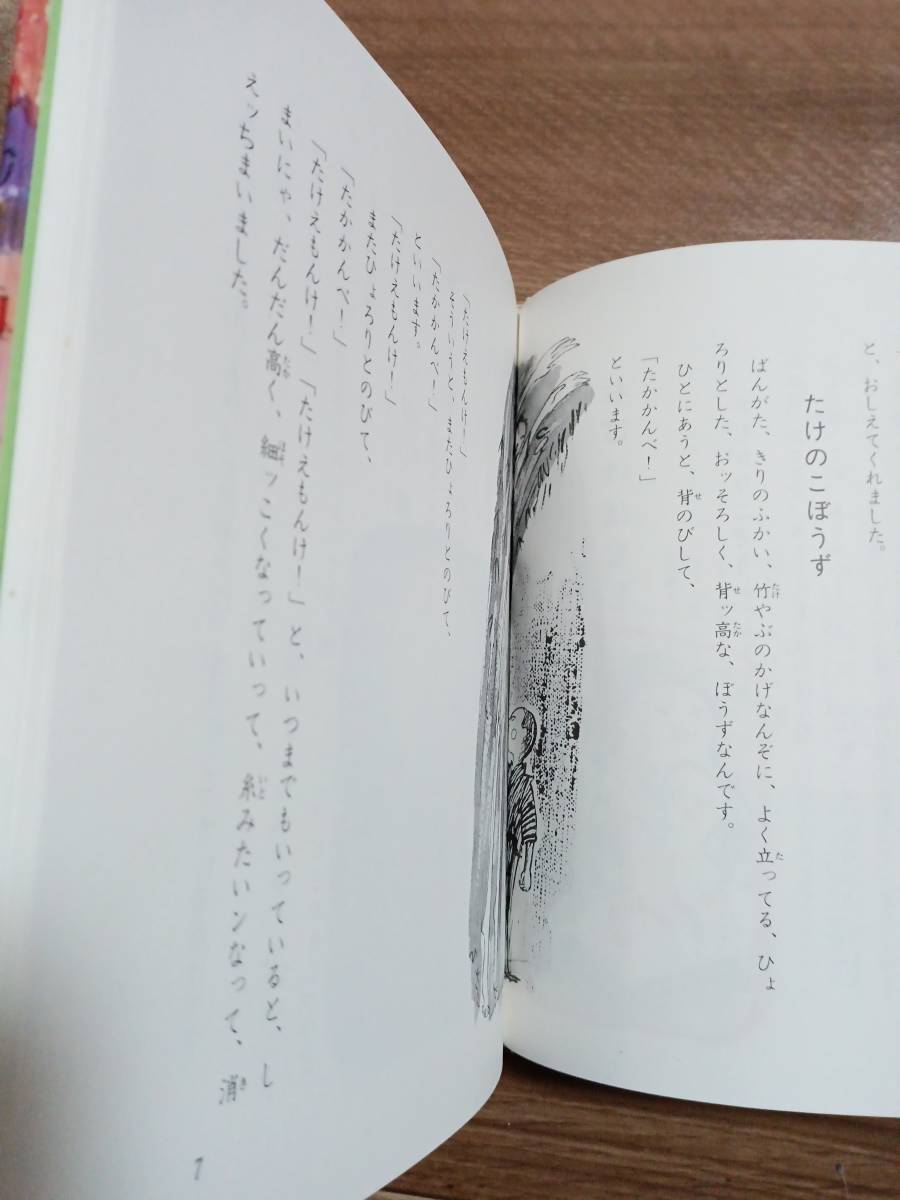 と、おしえてくれました。
たけのこぼうず
ばんがた、きりのふかい、竹やぶのかげなんぞに、よく立ってる、ひょ
ろりとした、おッそろしく、背ッ高な、ぼうずなんです。
ひとにあうと、背のびして、
「たかかんべ！」
といいます。
「たけえもんけ！」
そういうと、またひょろりとのびて、
「たかかんべ！」
といいます。
「たけえもんけ！」
またひょろりとのびて、
「たかかんべ！」
「たけえもんけ！」「たけえもんけ！」と、いつまでもいっていると、し
まいにゃ、だんだん高く、細ッこくなっていって、糸みたいンなって、消
えッちまいました。
7